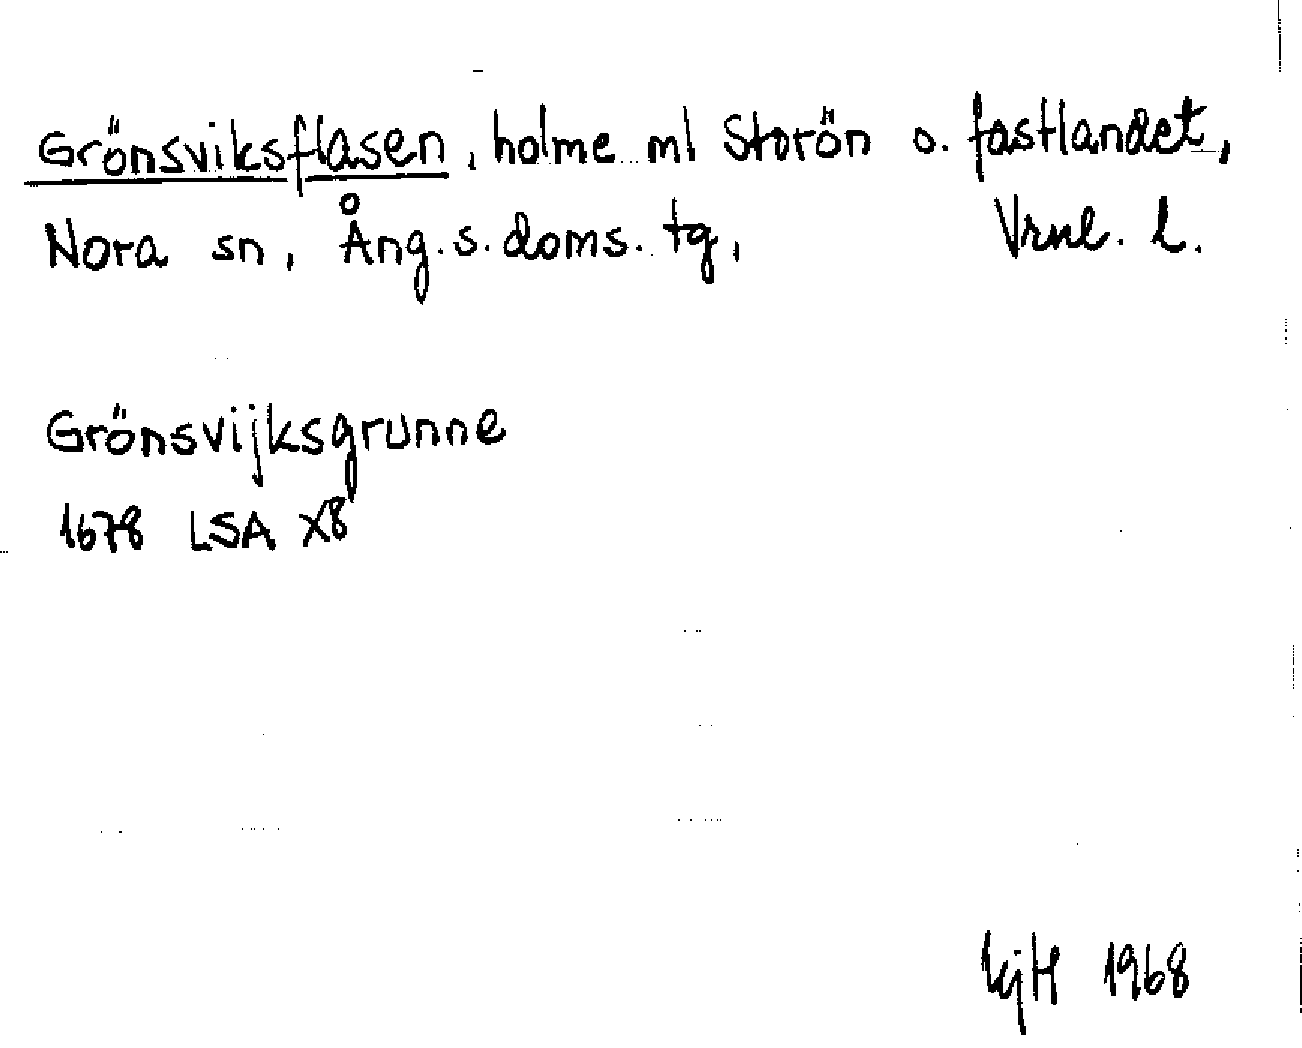 Grönsviksflasen, holme ml Storön o. fastlandet,
Nora sn, Ång. s. doms. tg, Vrnl. l.
Grönsvijksgrunne
1678 LSA X8
kjH 1968